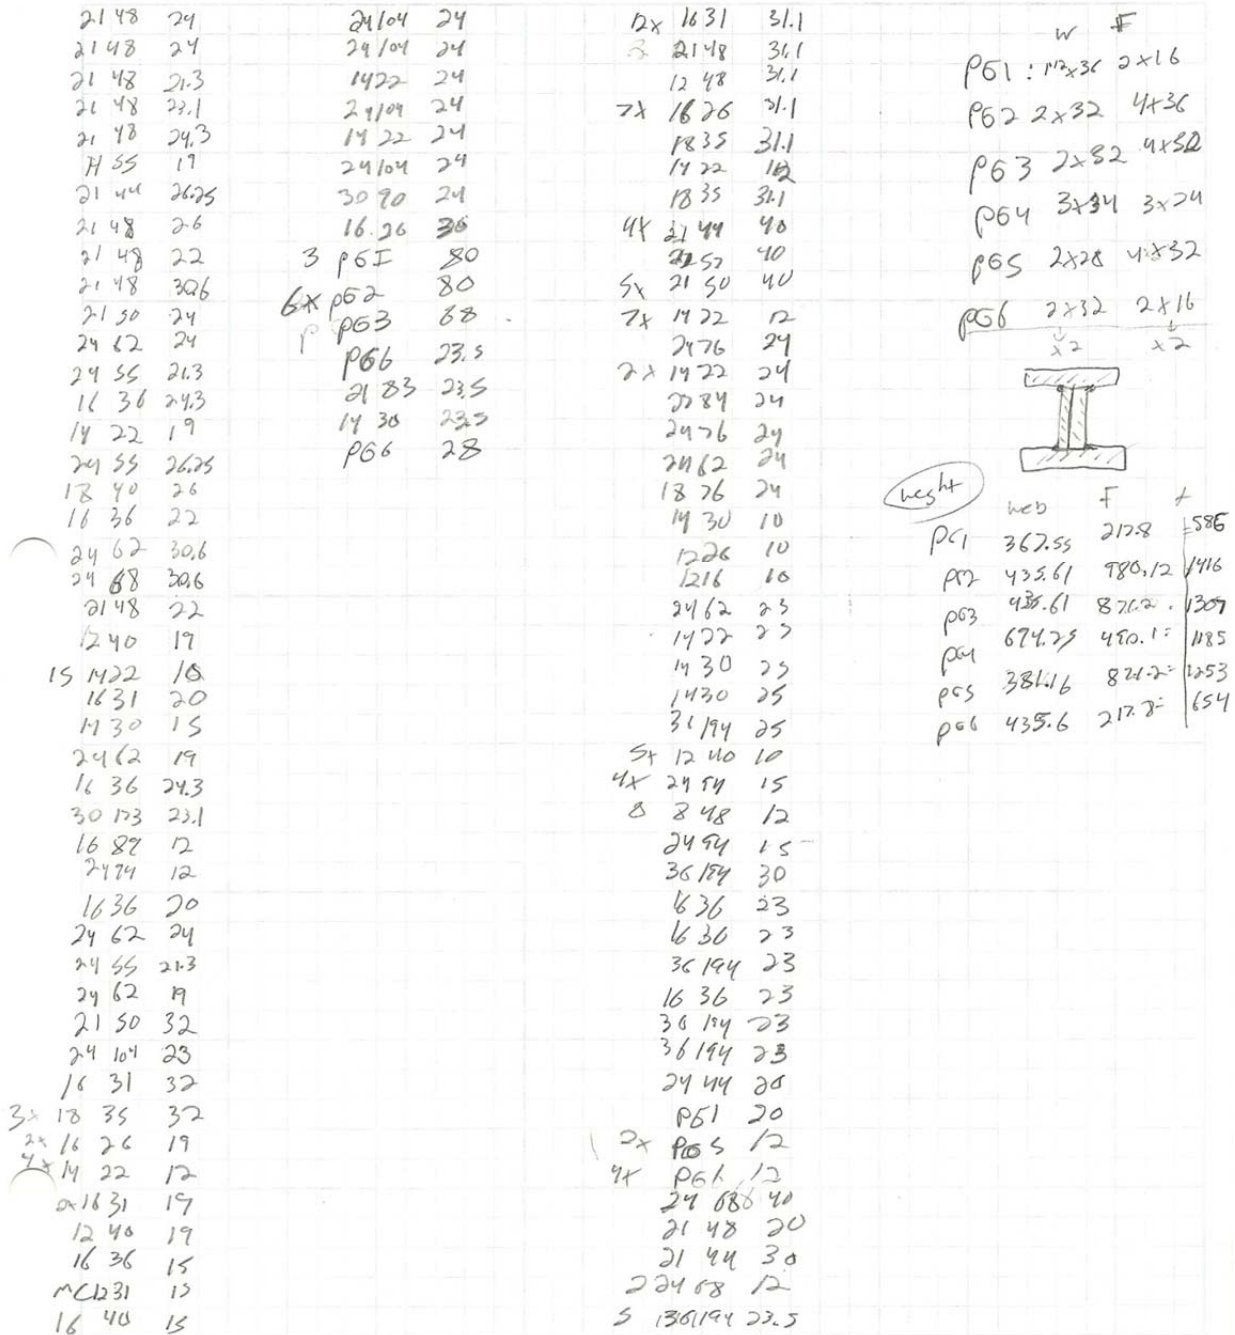 21 48 24
21 48 24
21 48 21.3
21 48 23.1
21 48 24.3
19
21 44 26.25
21 48 26
21 48 22
21 48 30.6
21 50 24
24 62 24
24 55 21.3
16 36 24.3
14 22 19
24 55 26.25
18 40 26
16 36 22
24 62 30.6
24 68 30.6
21 48 22
12 40 19
15 14 22 10
16 31 20
14 30 15
24 62 19
16 36 24.3
30 173 23.1
16 89 12
24 94 12
16 36 20
24 62 24
24 55 21.3
24 62 19
21 50 32
24 104 23
16 31 32
3x 18 35 32
2x 16 26 19
4x 14 22 12
2x 16 31 19
12 40 19
16 36 15
MC 12 31 15
16 40 15
24 104 24
24 104 24
14 22 24
24 104 24
14 22 24
24 104 24
30 90 24
16 26 30
3 PG1 80
6x PG2 80
PG3 68
PG6 23.5
21 83 23.5
14 30 23.5
PG6 28
12x 16 31 31.1
21 48 31.1
12 48 31.1
7x 16 26 31.1
18 35 31.1
14 22
18 35 31.1
4x 21 44 40
57 40
5x 21 50 40
7x 14 22 12
24 76 24
2x 14 22 24
84 24
24 76 24
24 62 24
18 76 24
14 30 10
12 26 10
12 16 10
24 62 23
14 22 23
14 30 23
14 30 25
36 194 25
5x 12 40 10
4x 24 94 15
8 8 48 12
24 94 15
36 194 30
16 36 23
16 36 23
36 194 23
16 36 23
36 194 23
36 194 23
24 44 20
PG1 20
2x PG5 12
4x PG6 12
24 68 40
21 48 20
21 44 30
2 24 68 12
5 36 194 23.5
W F
PG1 : 2x16
PG2 2x32 4x36
PG3 2x32 4x32
PG4 3x34 3x24
PG5 2x28 4x32
PG6 2x32 2x16
x2 x2
weight
web F
PG1 367.55 217.8 =586
PG2 435.61 980.12 1416
PG3 435.61 871.2 1307
PG4 694.25 490.1= 1185
PG5 381.16 871.2= 1253
PG6 435.6 217.8= 654